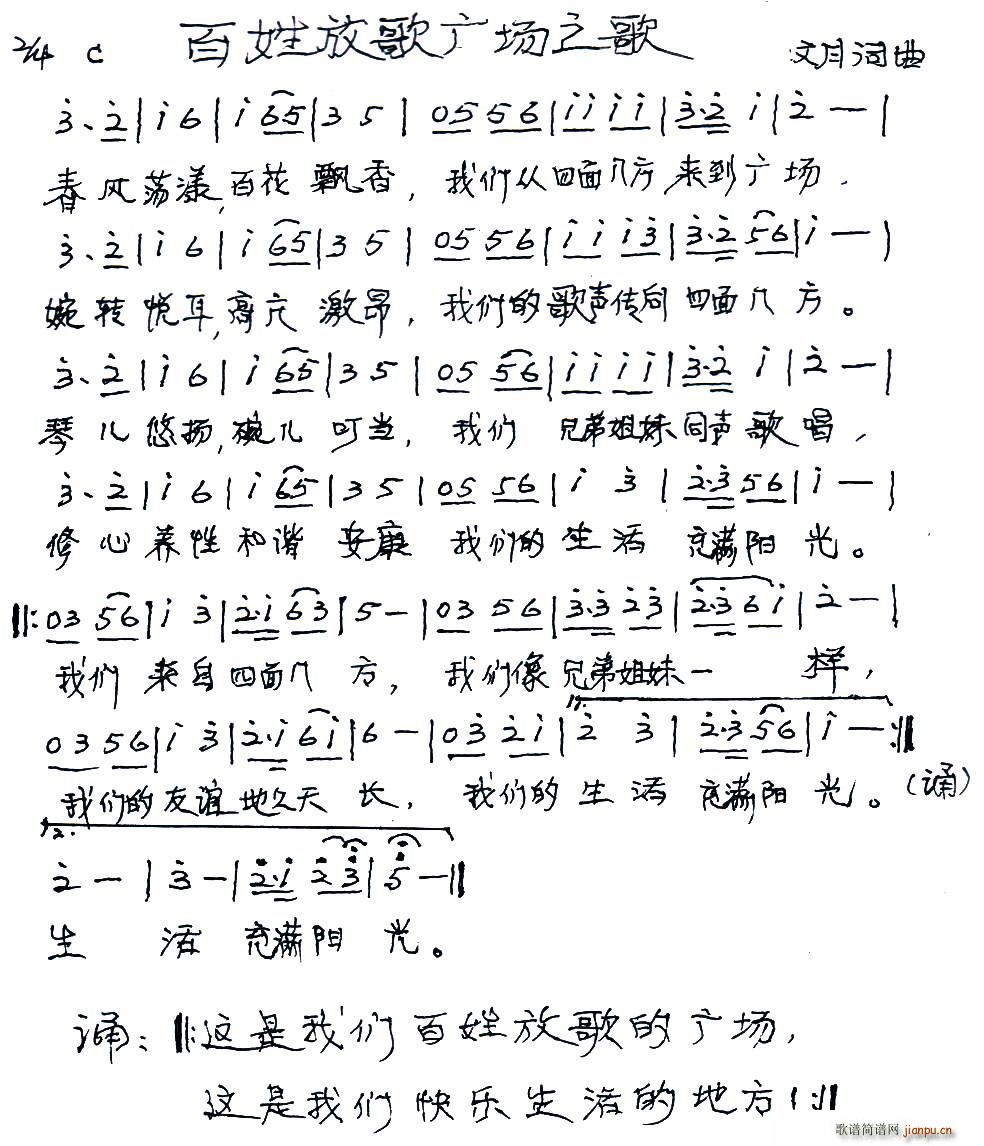 2/4 C 百姓放歌广场之歌 文月词曲
3̇、2̇|i 6|i 65|3 5|05 56|i i i i|3̇·2̇ i|2̇ —|
春风荡漾,百花飘香,我们从四面八方来到广场,
3̇、2̇|i 6|i 65|3 5|05 56|i i i 3̇|3̇·2̇ 56|i —|
婉转悦耳,高亢激昂,我们的歌声传向四面八方。
3̇、2̇|i 6|i 65|3 5|05 56|i i i i|3̇·2̇ i|2̇ —|
琴儿悠扬,碗儿叮当,我们兄弟姐妹同声歌唱,
3̇、2̇|i 6|i 65|3 5|05 56|i 3̇|2̇·3̇ 56|i —|
修心养性和谐安康 我们的生活充满阳光。
‖:03 56|i 3̇|2̇·i 63|5 —|03 56|3̇·3̇ 2̇3̇|2̇·3̇ 6i|2̇ —|
我们来自四面八方,我们像兄弟姐妹一样,
1.
03 56|i 3̇|2̇·i 6i|6 —|03̇ 2̇i|2̇ 3̇|2̇·3̇ 56|i —:‖
我们的友谊地久天长,我们的生活充满阳光。(诵)
2.
2̇ —|3̇ —|2̇·i 2̇3̇|5̇ —‖
生活充满阳光。
诵:‖:这是我们百姓放歌的广场,
这是我们快乐生活的地方|:‖
歌谱简谱网 jianpu.cn